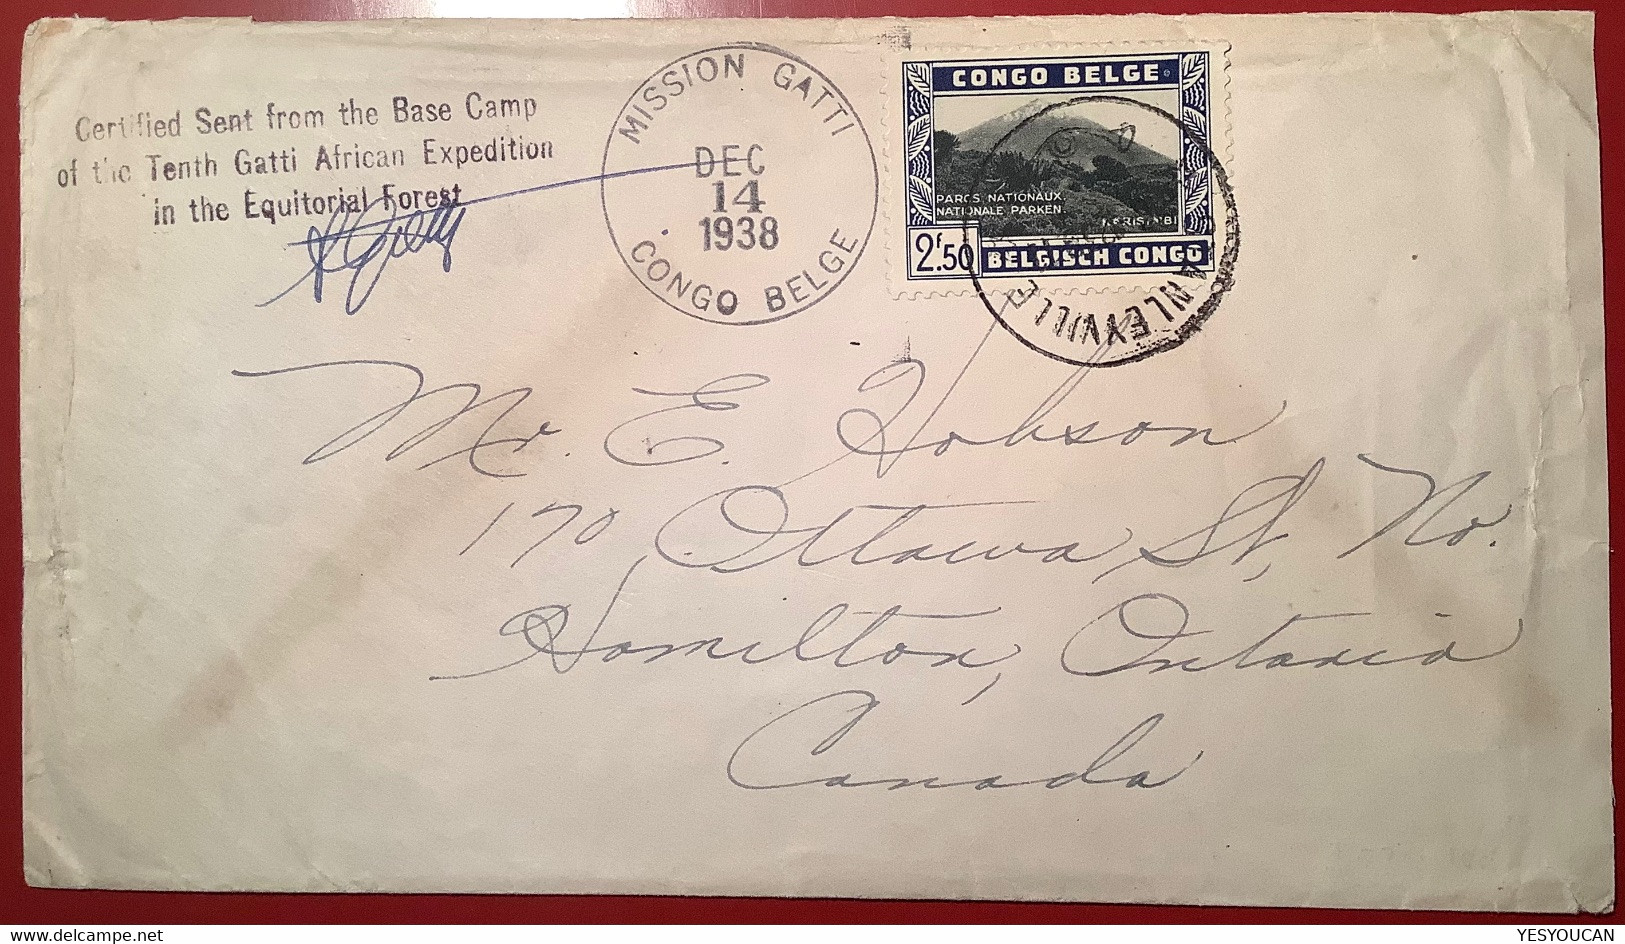 Certified Sent from the Base Camp
of the Tenth Gatti African Expedition
in the Equitorial Forest
MISSION GATTI
DEC
14
1938
CONGO BELGE
CONGO BELGE
PARCS NATIONAUX
NATIONALE PARKEN
2f.50
BELGISCH CONGO
Mr. E. Hobson
170 Ottawa St, No.
Hamilton, Ontario
Canada
YESYOUCAN